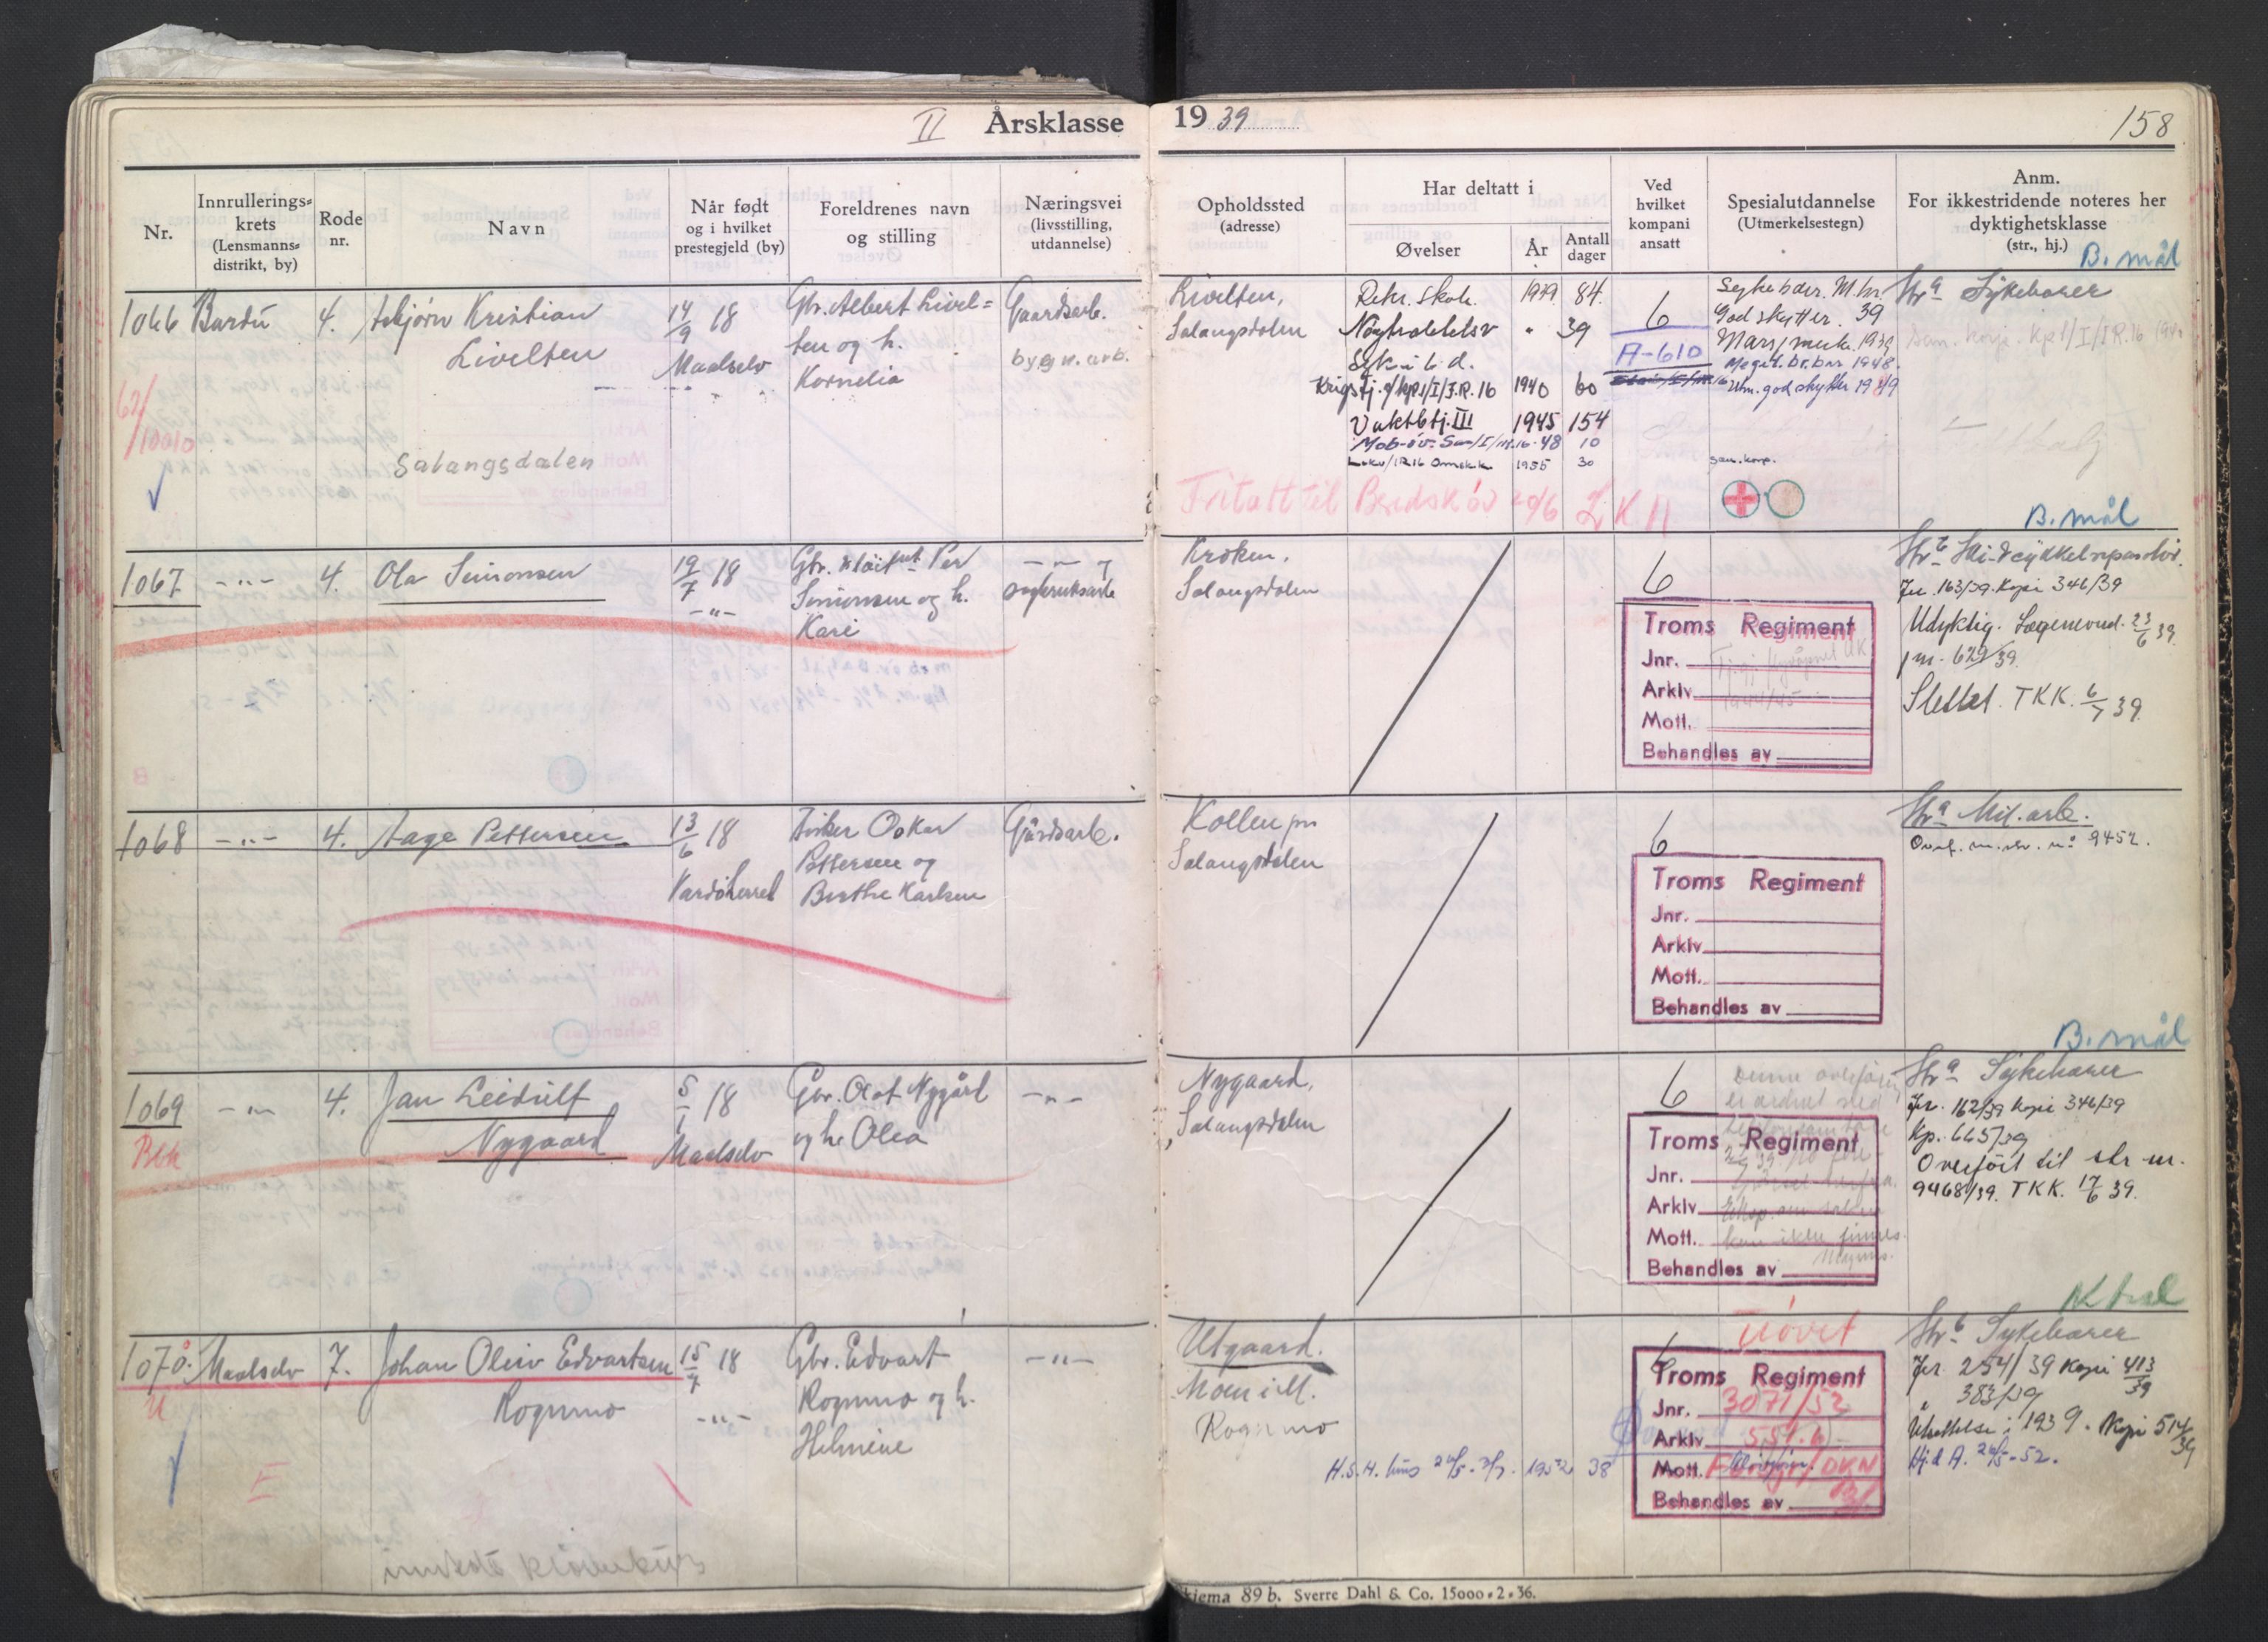 II Årsklasse 19 39
158
Nr.
Innrullerings-
krets
(Lensmanns-
distrikt, by)
Rode
nr.
Navn
Når født
og i hvilket
prestegjeld (by)
Foreldrenes navn
og stilling
Næringsvei
(livsstilling,
utdannelse)
Opholdssted
(adresse)
Har deltatt i
Øvelser
År
Antall
dager
Ved
hvilket
kompani
ansatt
Spesialutdannelse
(Utmerkelsestegn)
Anm.
For ikkestridende noteres her
dyktighetsklasse
(str., hj.)
B. mål
1066 Bardu 4. Asbjørn Kristian
Livelten
14/9 18
Maalselv
Gbr. Albert Livel=
ten og h.
Kornelia
Gaardsarb.
bygn. arb.
62/
/10010
Salangsdalen
Livelten,
Salangsdalen
Rekr. skole 1939 84.
Nøytralitetsv " 39
Krigstj. v/Kp1/I/I.R.16 1940 60
Vakttj. III 1945 154
Mob-øv. San/I/IR.16 - 48 10
1955 30
6
A-610
Sykebær. M.hr.
God skytter. 39
Marsjmerke 1939
Meget br.bar 1948.
san.korp.
Str. a Sykebærer
San. korp. Kp 1/I/IR.16 1940
Fritatt til Beredsk öv
B. mål
1067 -"- 4. Ola Simonsen
19/7 18
-"-
Gbr. Per
Simonsen og h.
Kari
-"-
sagbruksarb
Kroken,
Salangsdalen
6
Troms Regiment
Jnr.
Arkiv
Mott.
Behandles av
Str. b Ski- & sykkelreparatør.
Jr. 163/39. Kopi 346/39
Udyktig. Lægenevnd. 23/6 39.
jnr. 629/39.
Slettet. TKK. 6/7 39.
1068 -"- 4. Aage Pettersen
13/6 18
Vardøherred
Fisker Oskar
Pettersen og
Berthe Karlsen
Gårdsarb.
Kollen pr
Salangsdalen
6
Troms Regiment
Jnr.
Arkiv
Mott.
Behandles av
Str. a Mil. arb.
Overf. m. str. nr. 9452.
B. mål
1069 -"- 4. Jan Leidulf
Nygaard
5/1 18
Maalselv
Gbr. Olaf Nygård
og h. Olea
-"-
Nygaard,
Salangsdalen
6
Denne overføring
er ordnet med
Troms Regiment
Jnr.
Arkiv
Mott. kan ikke finnes.
Behandles av
Str. a Sykebærer
Jr. 162/39 Kopi 346/39
Kp. 665/39
Overført til str. nr.
9468/39. TKK. 17/6 39.
1070. Maalselv 7. Johan Oliv Edvartsen
Rognmo
15/7 18
-"-
Gbr. Edvart
Rognmo og h.
Helmine
-"-
Utgaard.
Moen i M.
Rognmo
1952 38
Uøvet
6
Troms Regiment
Jnr. 3071/52
Arkiv 551.6
Mott.
Behandles av
Str. b Sykebærer
Jr. 254/39 Kopi 413/39
383/39
Utsettelse i 1939. Kopi 514/39
Hj. d A. 26/5-52.
Skjema 89 b. Sverre Dahl & Co. 15000-2-36.